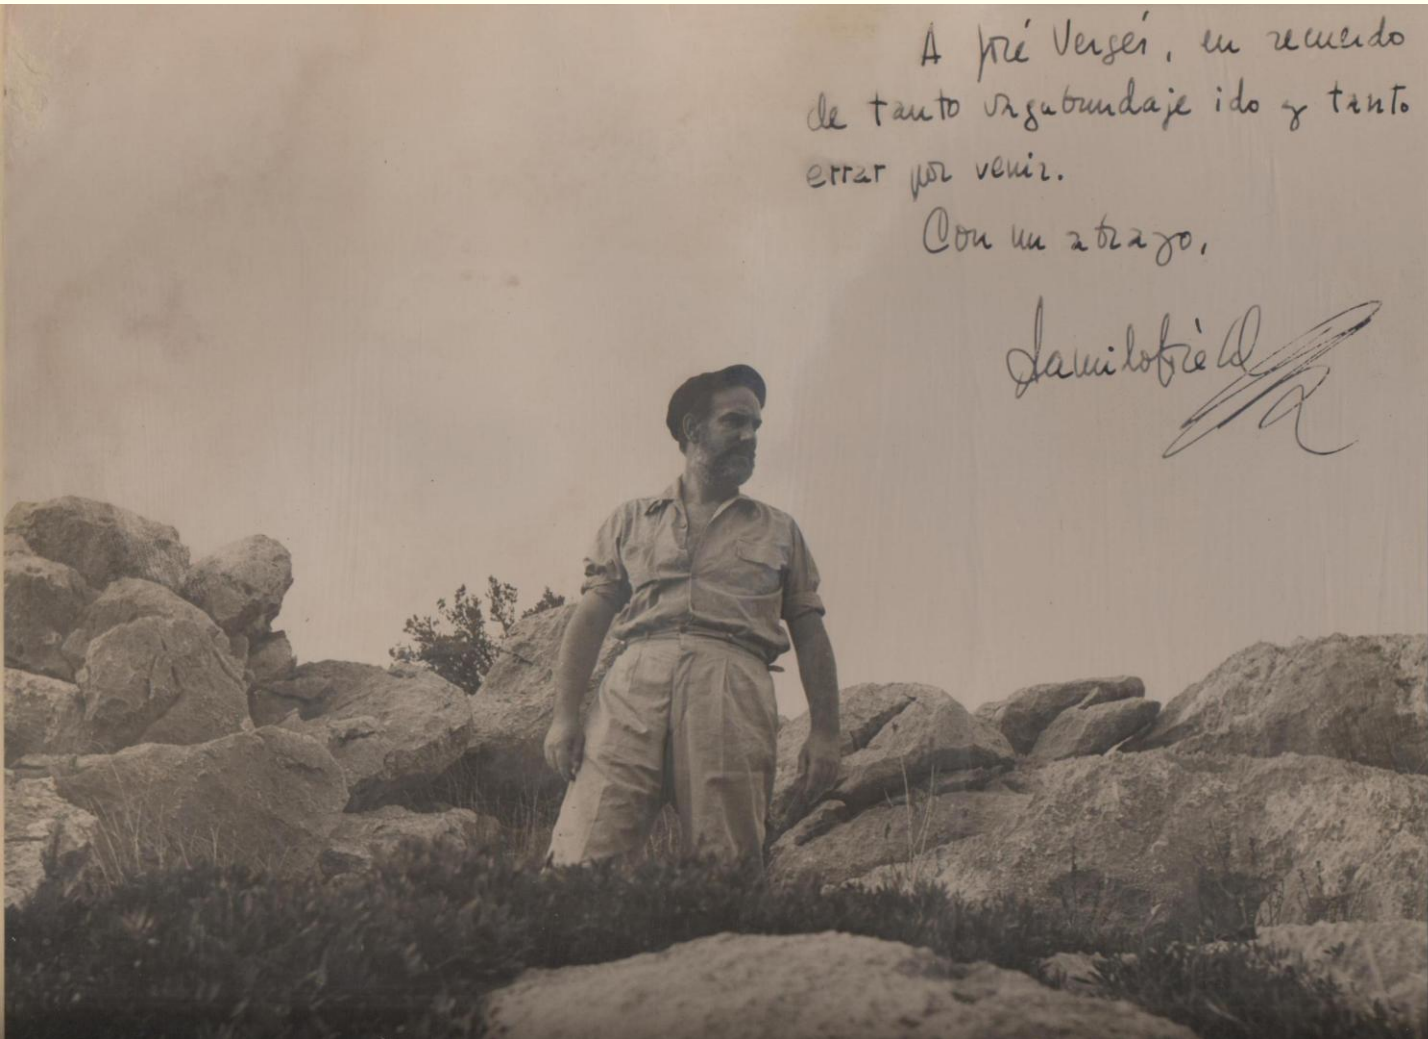 A José Vergés, en recuerdo
de tanto vagabundaje ido y tanto
errar por venir.
Con un abrazo,
Camilo José Cela